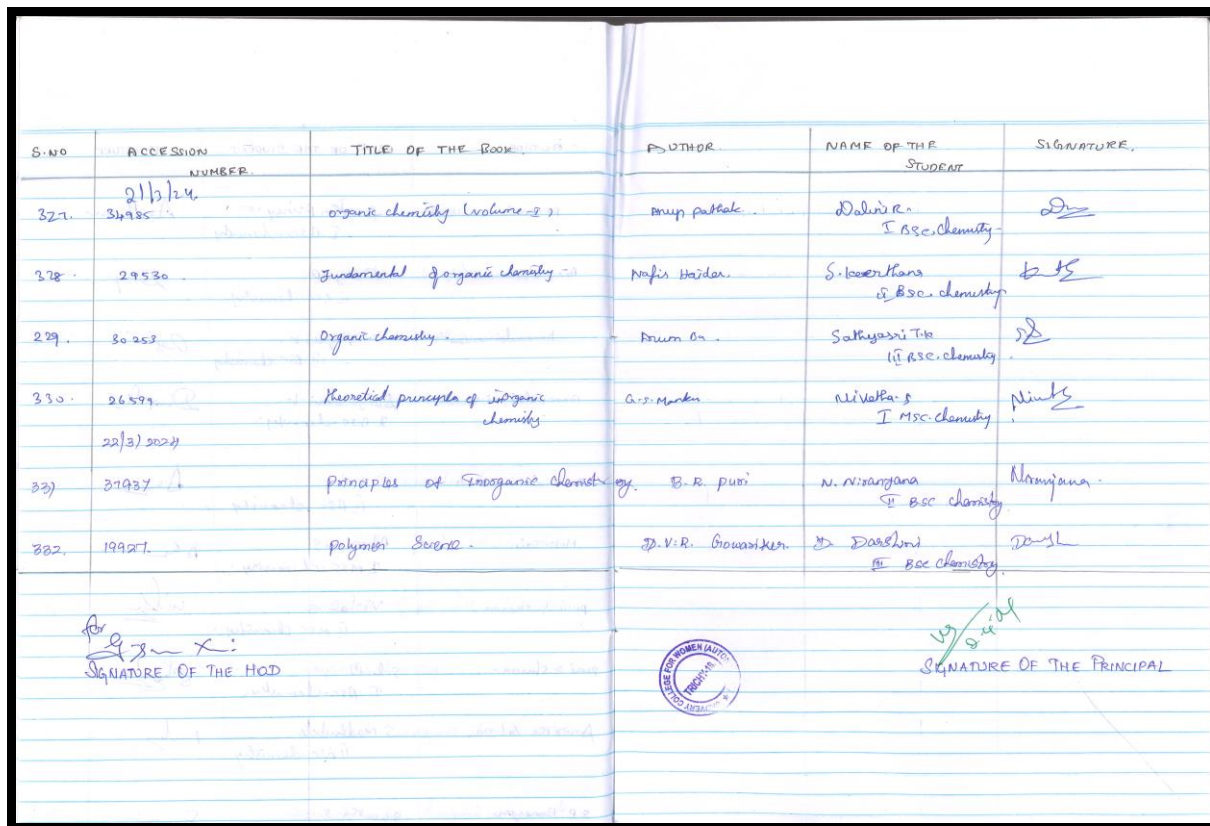 S.NO ACCESSION NUMBER. TITLE OF THE BOOK. AUTHOR. NAME OF THE STUDENT SIGNATURE.
21/3/24
327. 34985 organic chemistry (volume-I) Anup pathak. Dalini R.
I BSc. Chemistry
328. 29530. Fundamental of organic chemistry Nafis Haider. S. keerthana
II BSc. chemistry
229. 30253 Organic chemistry. Arun Sathyasri T.k
III BSc. chemistry
330. 26599. Theoretical principles of inorganic chemistry G.S. Manku Nivetha. S
I MSC. Chemistry
22/3/2024
331 37937 Principles of Inorganic Chemistry. B. R. puri N. Niranjana Niranjana.
II BSC chemistry
332. 19927. polymer Science. D. V. R. Gowariker. D. Darshini
III BSc Chemistry
for
SIGNATURE OF THE HOD
CAUVERY COLLEGE FOR WOMEN (AUTO
TRICHY-18
SIGNATURE OF THE PRINCIPAL